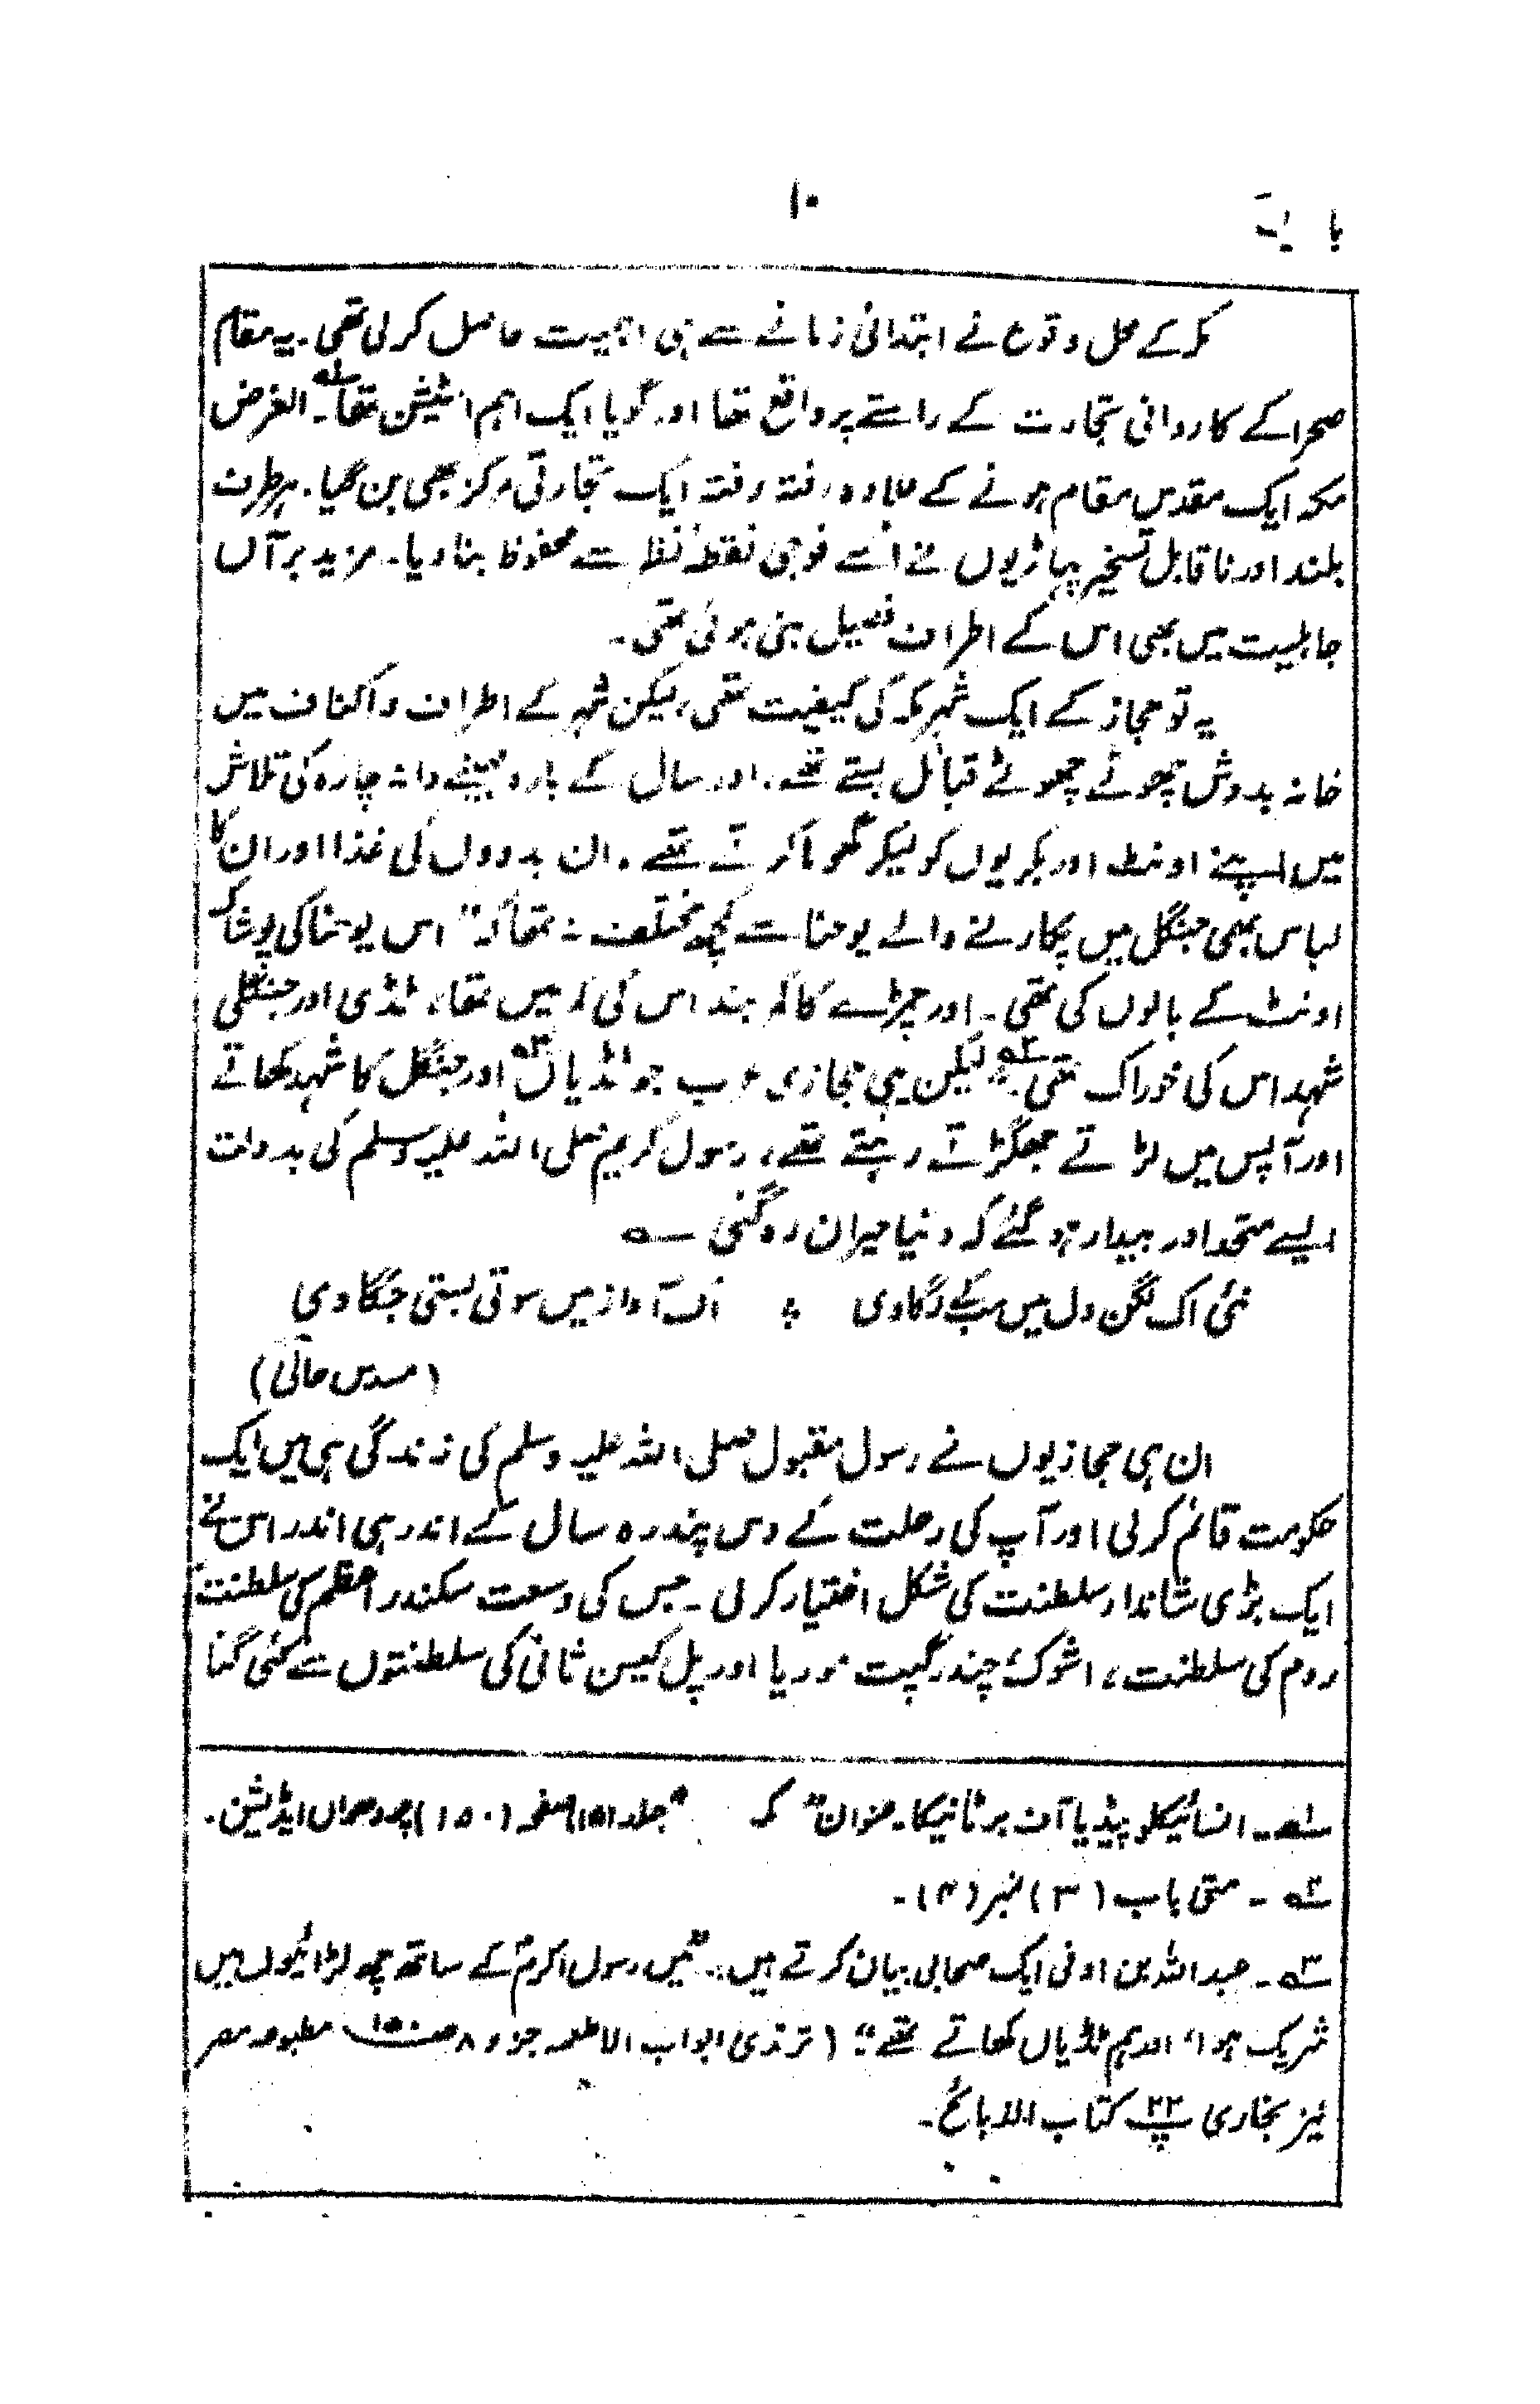 ۱۰
مکہ کے محل وقوع نے ابتدائی زمانے سے ہی اہمیت حاصل کرلی تھی۔ یہ مقام
صحرا کے کاروانی تجارت کے راستے پر واقع تھا اور گویا ایک اہم اسٹیشن تھا۔ الغرض
مکہ ایک مقدس مقام ہونے کے علاوہ رفتہ رفتہ ایک تجارتی مرکز بھی بن گیا۔ ہر طرف
بلند اور ناقابل تسخیر پہاڑیوں نے اُسے فوجی نقطۂ نظر سے محفوظ بنا دیا۔ مزید برآں
جاہلیت میں بھی اس کے اطراف فصیل بنی ہوئی تھی۔
یہ تو حجاز کے ایک شہر مکہ کی کیفیت تھی، لیکن شہر کے اطراف واکناف میں
خانہ بدوش چھوٹے چھوٹے قبائل بستے تھے۔ اور سال کے بارہ مہینے دانہ چارہ کی تلاش
میں اپنے اونٹ اور بکریوں کو لیکر گھوما کرتے تھے۔ ان بدووں کی غذا اور ان کا
لباس بھی جنگل میں پکارنے والے یوحنا سے کچھ مختلف نہ تھا کہ "اس یوحنا کی پوشاک
اونٹ کے بالوں کی تھی۔ اور چمڑے کا کمر بند اس کی کمر میں تھا، ٹڈی اور جنگلی
شہد اس کی خوراک تھی" ۲؎ لیکن یہی حجازی عرب جو ٹڈیاں ۳؎ اور جنگل کا شہد کھاتے
اور آپس میں لڑتے جھگڑتے رہتے تھے، رسول کریم صلی اللہ علیہ وسلم کی بدولت
ایسے متحد اور بیدار ہو گئے کہ دنیا حیران رہ گئی ؎
نئی اک لگن دل میں سب کے لگا دی ؛ اک آواز میں سوتی بستی جگا دی
(مسدس حالی)
ان ہی حجازیوں نے رسول مقبول صلی اللہ علیہ وسلم کی زندگی ہی میں ایک
حکومت قائم کرلی اور آپ کی رحلت کے دس پندرہ سال کے اندر ہی اندر اس نے
ایک بڑی شاندار سلطنت کی شکل اختیار کرلی۔ جس کی وسعت سکندر اعظم کی سلطنت،
روم کی سلطنت، اشوک، چندر گپت موریا اور پل کیسن ثانی کی سلطنتوں سے کئی گنا
۱؎۔ انسائیکلو پیڈیا آف برٹانیکا۔ عنوان "مکہ" جلد (۱۵) صفحہ (۱۵۰) چودھواں ایڈیشن۔
۲؎ ۔ متی باب (۳) نمبر (۴)۔
۳؎ ۔ عبداللہ بن اوفی ایک صحابی بیان کرتے ہیں۔ "میں رسول اکرمؐ کے ساتھ چھ لڑائیوں میں
شریک ہوا، اور ہم ٹڈیاں کھاتے تھے"۔ (ترمذی ابواب الاطعمہ جزو ۸ مطبوعہ مصر
نیز بخاری پ ۲۲ کتاب الذبائح۔